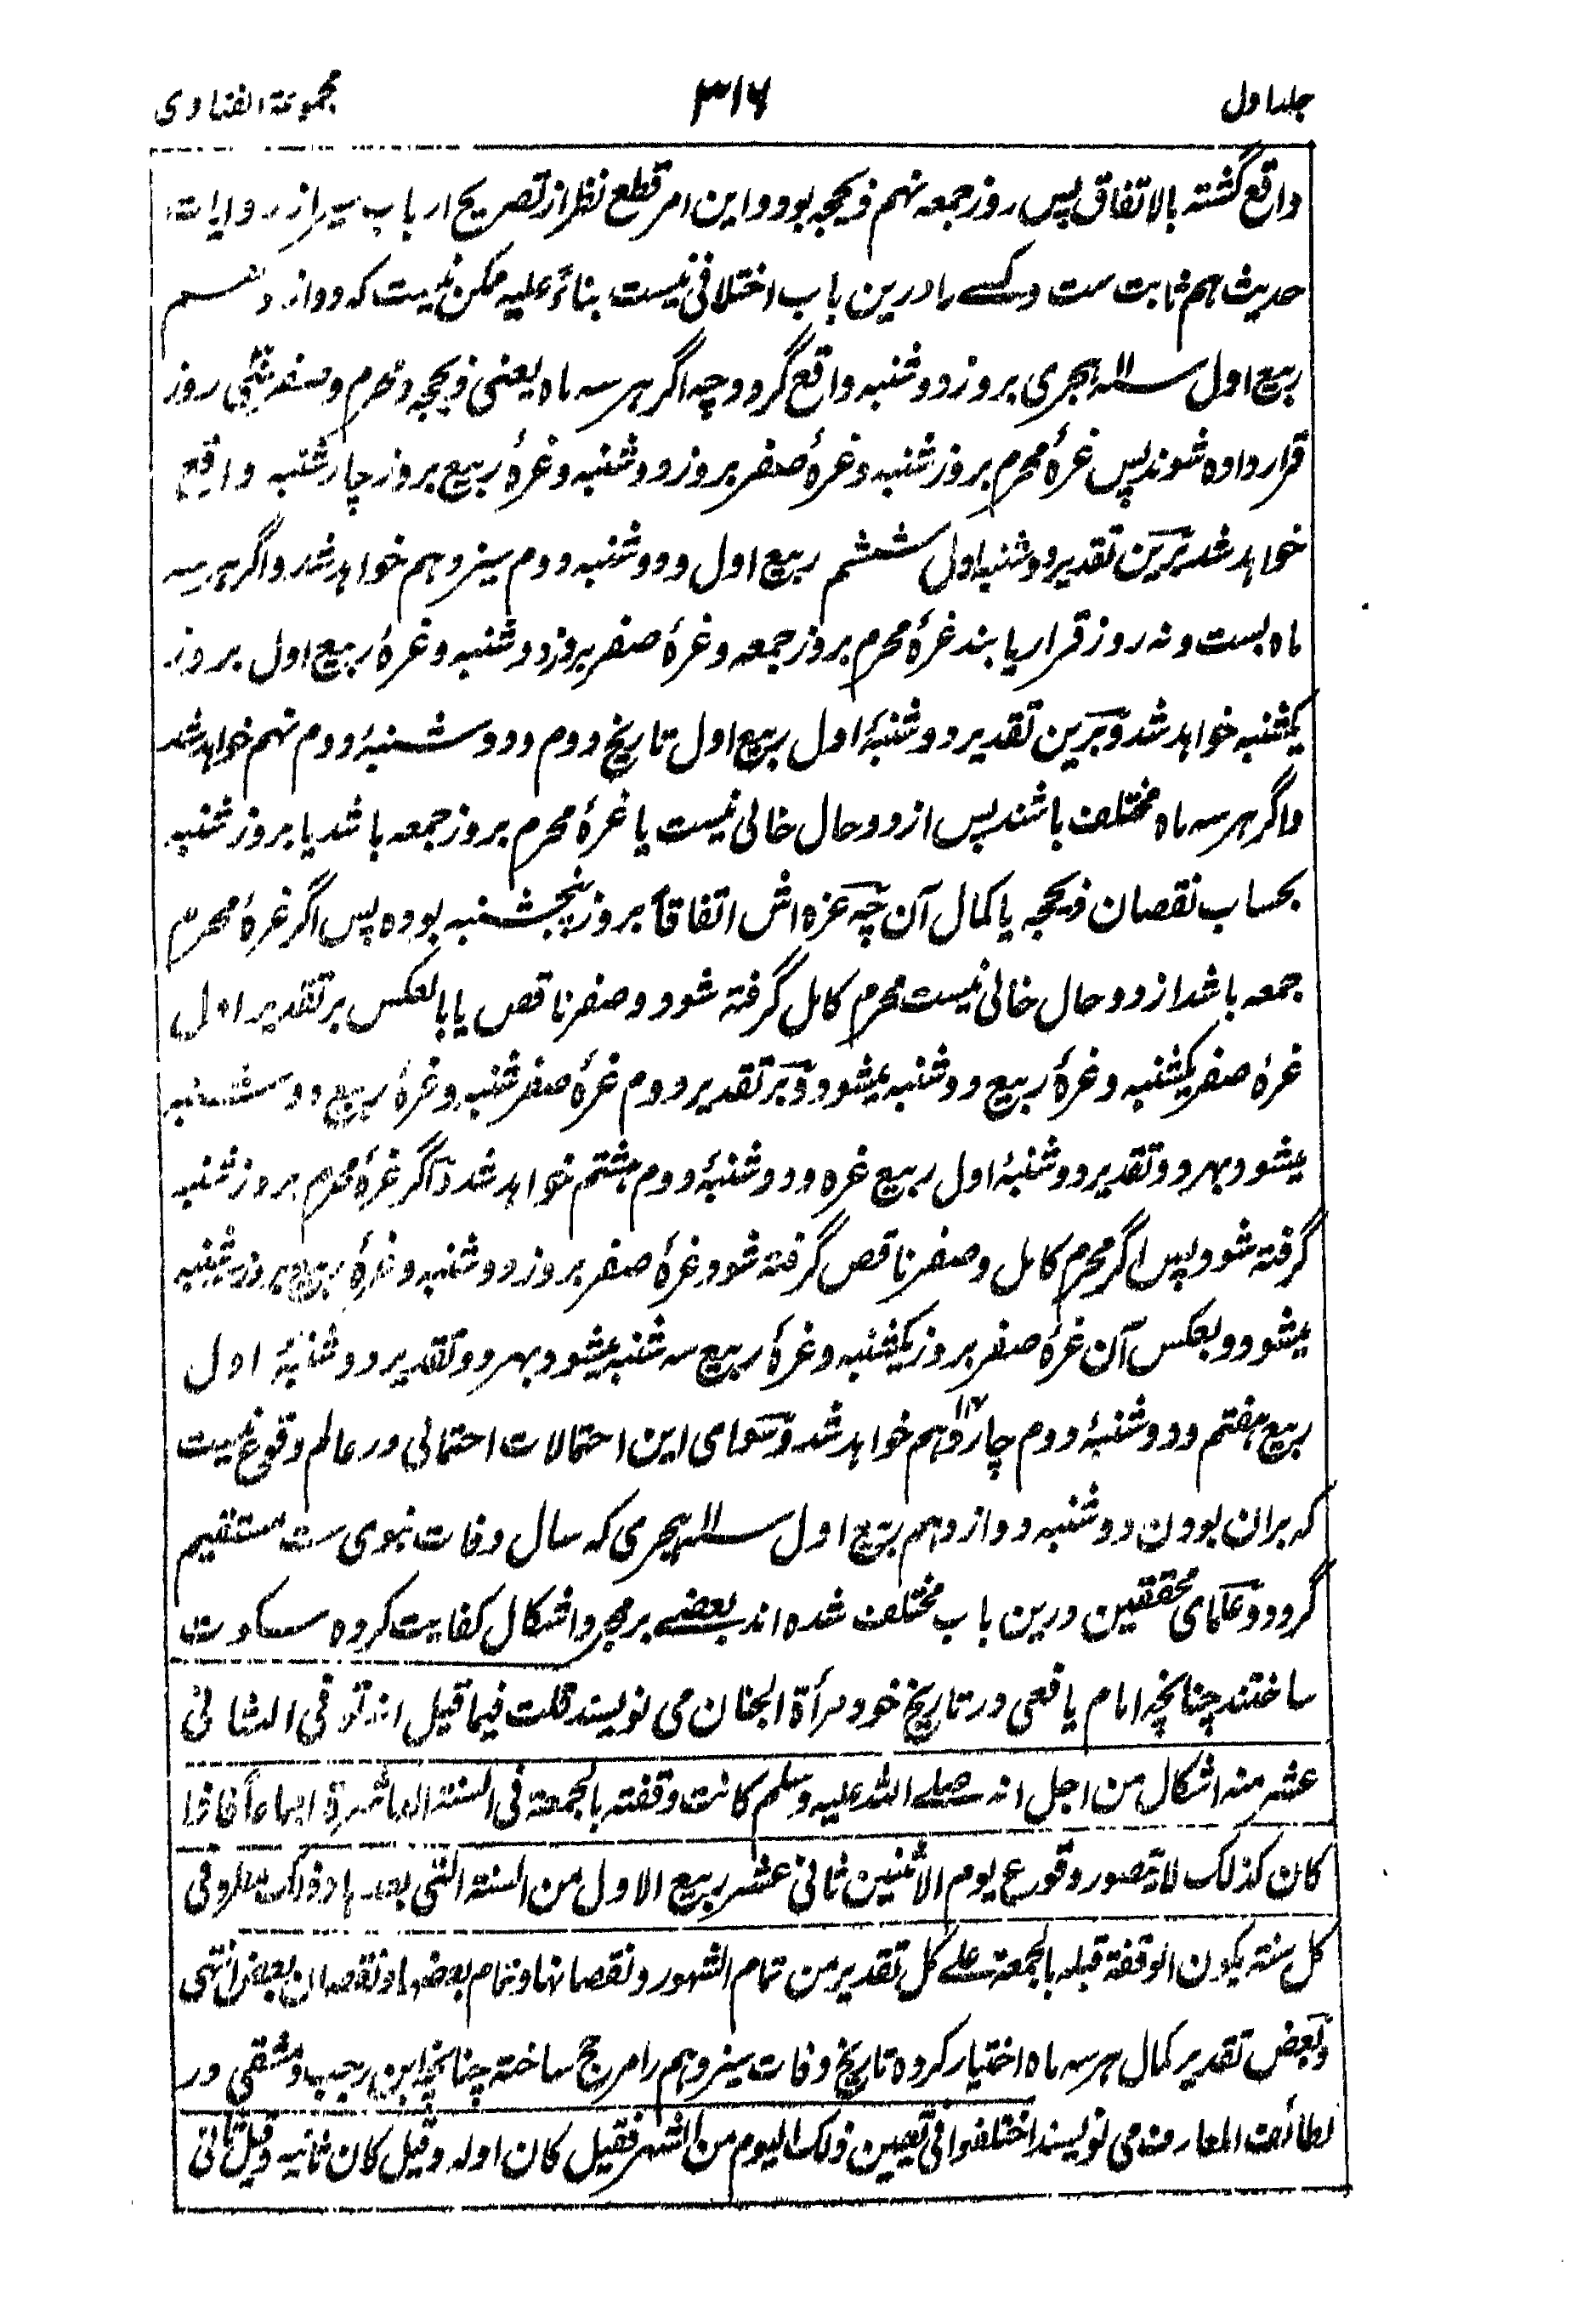 جلد اول ۳۱۶ مجموعۃ الفتاوی
واقع گشتہ بالاتفاق پس روز جمعہ نہم ذیحجہ بود و این امر قطع نظر از تصریح ارباب سیر از روایات
حدیث ہم ثابت ست و کسے را درین باب اختلافی نیست بناءً علیہ ممکن نیست کہ دوازدہم
ربیع اول سنہ ۱۱ ہجری بروز دوشنبہ واقع گردد چہ اگر ہر سہ ماہ یعنی ذیحجہ و محرم و صفر سی سی روز
قرار دادہ شوند پس غرۂ محرم بروز شنبہ و غرۂ صفر بروز دوشنبہ و غرۂ ربیع بروز چارشنبہ واقع
خواہد شد برین تقدیر دوشنبہ اول ششم ربیع اول و دوشنبہ دوم سیزدہم خواہد شد و اگر ہر سہ
ماہ بست و نہ روز قرار یابند غرۂ محرم بروز جمعہ و غرۂ صفر بروز دوشنبہ و غرۂ ربیع اول بروز
یکشنبہ خواہد شد و برین تقدیر دوشنبۂ اول ربیع اول تاریخ دوم و دوشنبۂ دوم نہم خواہد شد
و اگر ہر سہ ماہ مختلف باشند پس از دو حال خالی نیست یا غرۂ محرم بروز جمعہ باشد یا بروز شنبہ
بحساب نقصان ذیحجہ یا کمال آن چہ غرہ اش اتفاقاً بروز پنجشنبہ بودہ پس اگر غرۂ محرم
جمعہ باشد از دو حال خالی نیست محرم کامل گرفتہ شود و صفر ناقص یا بالعکس بر تقدیر اول
غرۂ صفر یکشنبہ و غرۂ ربیع دوشنبہ میشود و بر تقدیر دوم غرۂ صفر شنبہ و غرۂ ربیع دوشنبہ
میشود بہر دو تقدیر دوشنبۂ اول ربیع غرہ و دوشنبۂ دوم ہشتم خواہد شد و اگر غرۂ محرم بروز شنبہ
گرفتہ شود پس اگر محرم کامل و صفر ناقص گرفتہ شود غرۂ صفر بروز دوشنبہ و غرۂ ربیع بروز سہ شنبہ
میشود و بعکس آن غرۂ صفر بروز یکشنبہ و غرۂ ربیع سہ شنبہ میشود بہر دو تقدیر دوشنبۂ اول
ربیع ہفتم و دوشنبۂ دوم چاردہم ۱۴ خواہد شد و سوای این احتمالات احتمالی در عالم وقوع نیست
کہ بران بودن دوشنبہ دوازدہم ربیع اول سنہ ۱۱ ہجری کہ سال وفات نبوی ست مستقیم
گردد و علمای محققین درین باب مختلف شدہ اند بعضے بر مجرد اشکال کفایت کردہ سکوت
ساختند چنانچہ امام یافعی در تاریخ خود مرأۃ الجنان می نویسد قلت فیما قیل انہ توفی الثانی
عشر منہ اشکال من اجل انہ صلے اللہ علیہ وسلم کانت وقفتہ بالجمعۃ فی السنۃ العاشرۃ اجماعاً فاذا
کان کذلک لا یتصور وقوع یوم الاثنین ثانی عشر ربیع الاول من السنۃ التی بعدہا و ذلک مطرد فی
کل سنۃ یکون الوقفۃ قبلہ بالجمعۃ علے کل تقدیر من تمام الشہور و نقصانہا و تمام بعضہا و نقصان بعض انتہی
و بعض تقدیر کمال ہر سہ ماہ اختیار کردہ تاریخ وفات سیزدہم را مرجح ساختہ چنانچہ ابن رجب دمشقی در
لطائف المعارف می نویسد اختلفوا فی تعیین ذلک الیوم من الشہر فقیل کان اولہ وقیل کان ثانیہ وقیل ثانی